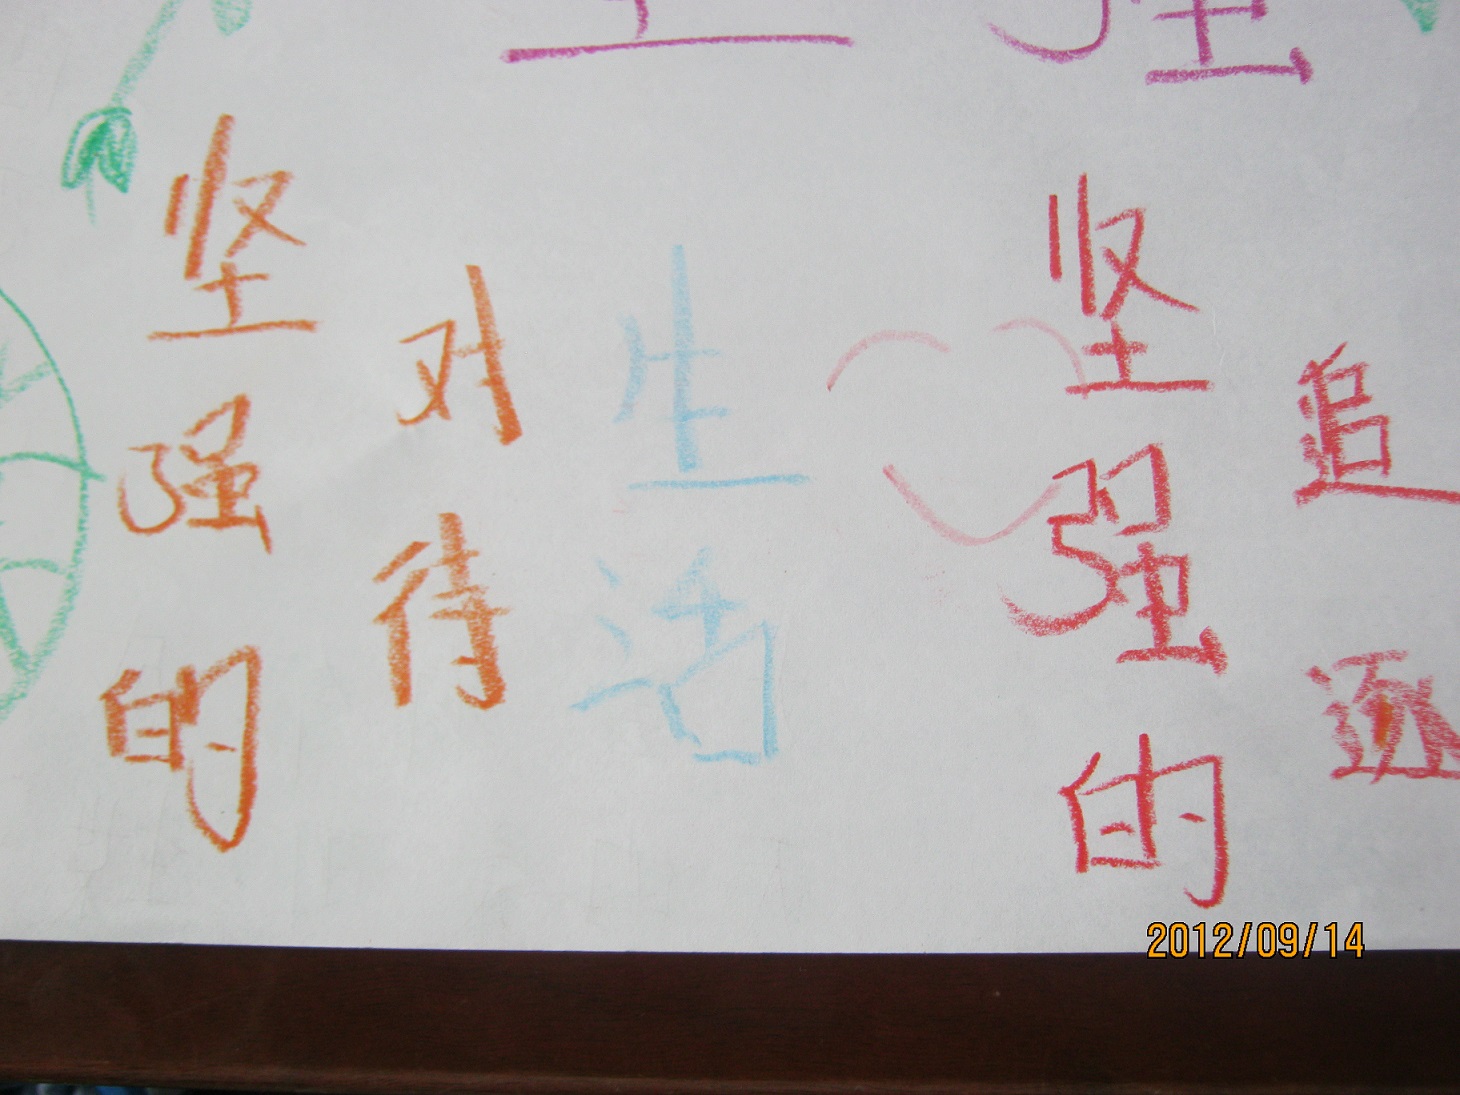 坚强
坚强的
对待
生活
坚强的
追逐
2012/09/14